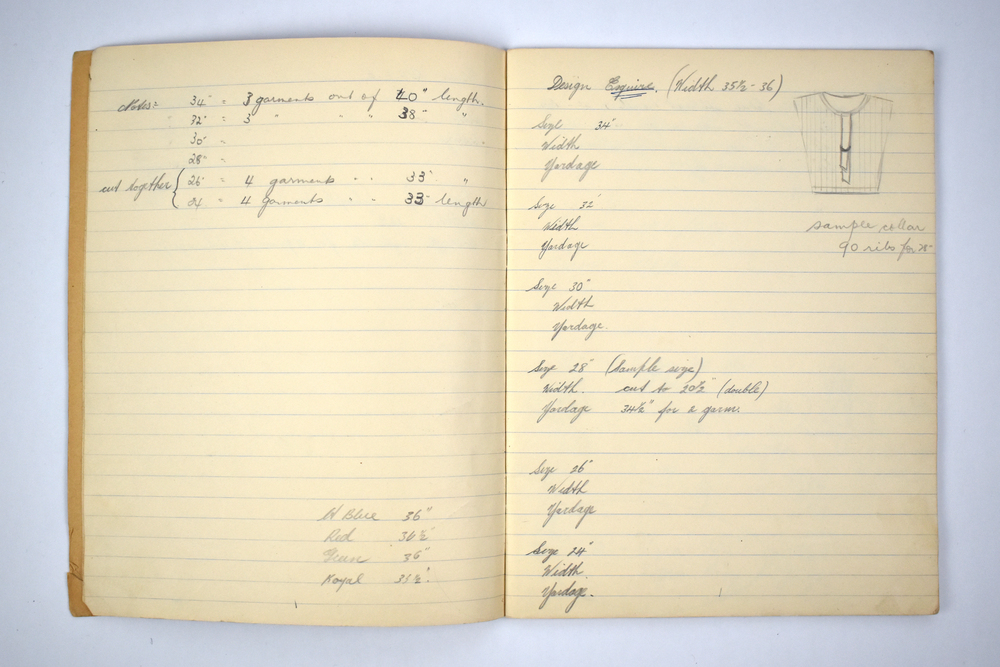 Notes: 34" = 3 garments out of 40" length.
32" = 3 " " " 38" "
30" =
28" =
cut together { 26" = 4 garments " " 33" "
24 = 4 garments " " 33" length
Lt Blue 36"
Red 36½"
Green 36"
Royal 35½".
Design Esquire. (Width 35½ - 36)
Size 34"
Width
Yardage
Size 32
Width
Yardage
sample collar
90 ribs for
Size 30"
Width
Yardage.
Size 28" (Sample size)
Width. cut to 20½" (double)
Yardage 34½" for 2 garm.
Size 26"
Width
Yardage
Size 24"
Width
Yardage.